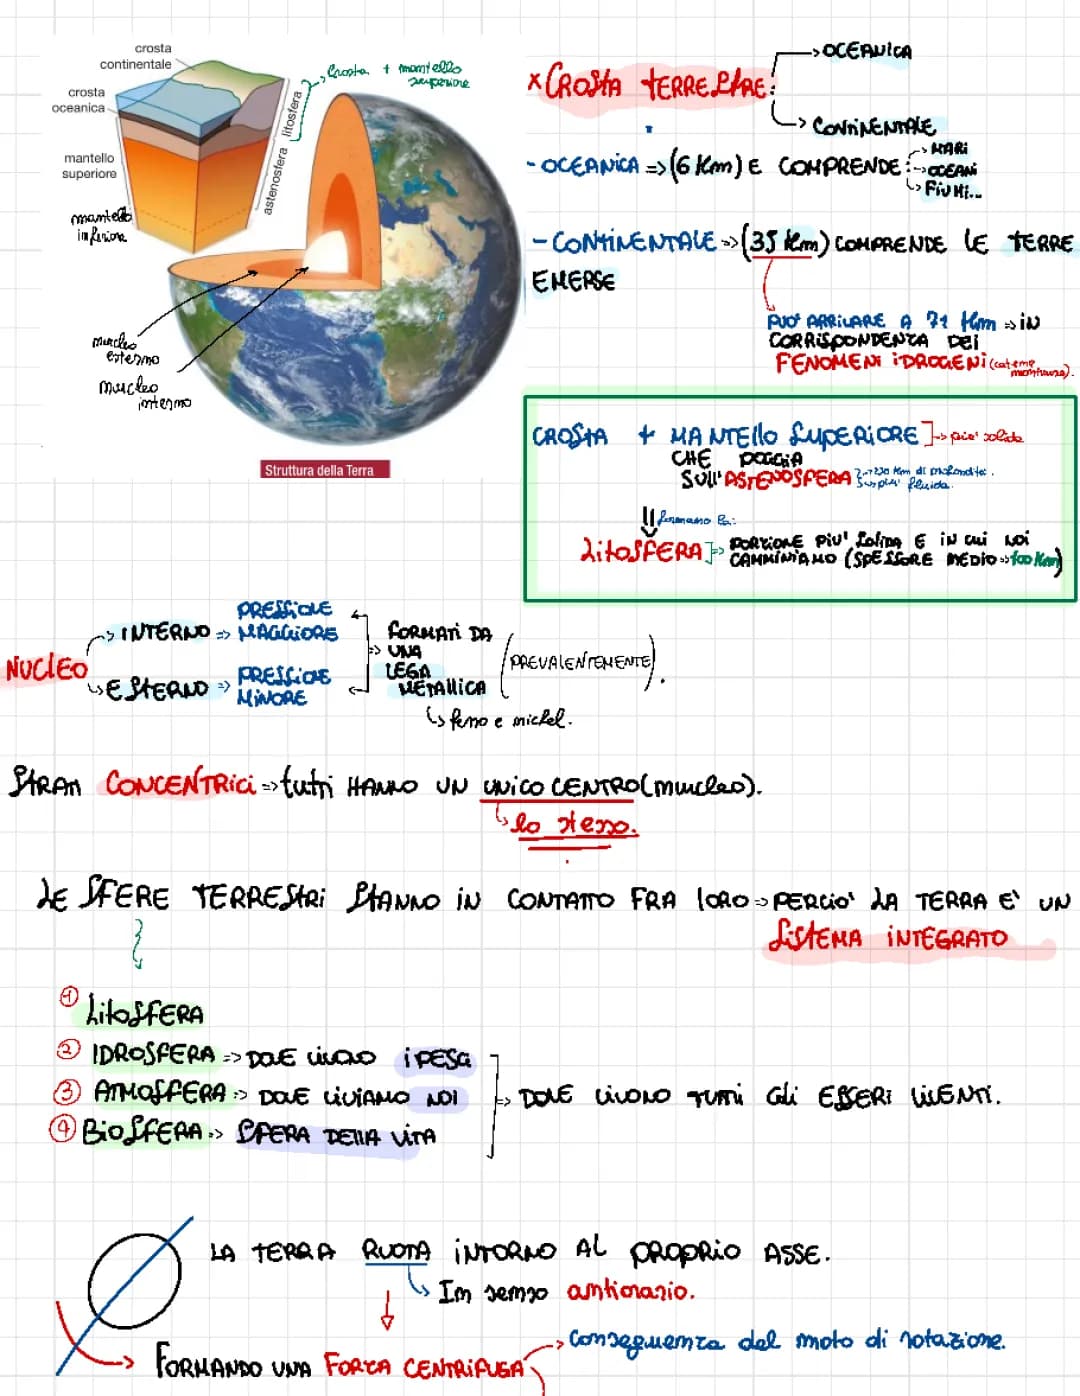 crosta
continentale
crosta
oceanica
mantello
superiore
mantello
inferiore
litosfera
astenosfera
Crosta + mantello
superiore
nucleo
esterno
nucleo
interno
Struttura della Terra
x CROSTA TERRESTRE:
-> OCEANICA
-> CONTINENTALE
- OCEANICA => (6 Km) E COMPRENDE:
-> MARI
-> OCEANI
-> FIUMI...
- CONTINENTALE => (35 Km) COMPRENDE LE TERRE
EMERSE
PUO' ARRIVARE A 71 Km => iN
CORRISPONDENZA DEi
FENOMENI iDROGENi (catene
montuose).
CROSTA + MANTEllO SUPERiORE ]-> piu' solida
CHE POGGIA
SUll' ASTENOSFERA -> 250 Km di profondita'.
-> piu' fluida.
formano la:
LitOSFERA ]=> PORZIONE PIU' SOLIDA E IN CUI NOI
CAMMINIAMO (SPESSORE MEDIO => 100 Km)
NUCLEO
-> INTERNO => PRESSIONE
MAGGIORE
-> ESTERNO => PRESSIONE
MINORE
=> FORMATI DA
UNA
LEGA
METALLICA
(PREVALENTEMENTE).
-> ferro e nichel.
STRATI CONCENTRICi => tutti HANNO UN UNICO CENTRO (nucleo).
-> lo stesso.
LE SFERE TERRESTRi STANNO iN CONTATTO FRA lORO => PERCIO' LA TERRA E' UN
SiSTEMA iNTEGRATO
1 LitOSFERA
2 IDROSFERA => DOVE VIVONO i PESCi
3 ATMOSFERA => DOVE VIVIAMO NOI
4 BiOSFERA => SFERA DELLA VITA
=> DOVE VIVONO TUTTI Gli ESSERi VIVENTI.
LA TERRA RUOTA iNTORNO AL PROPRiO ASSE.
-> In senso antiorario.
-> FORMANDO UNA FORZA CENTRiFUGA
-> Conseguenza del moto di rotazione.